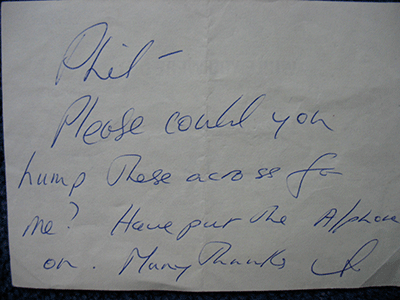 Phil -
Please could you
hump these across for
me? Have put the A/phone
on. Many Thanks